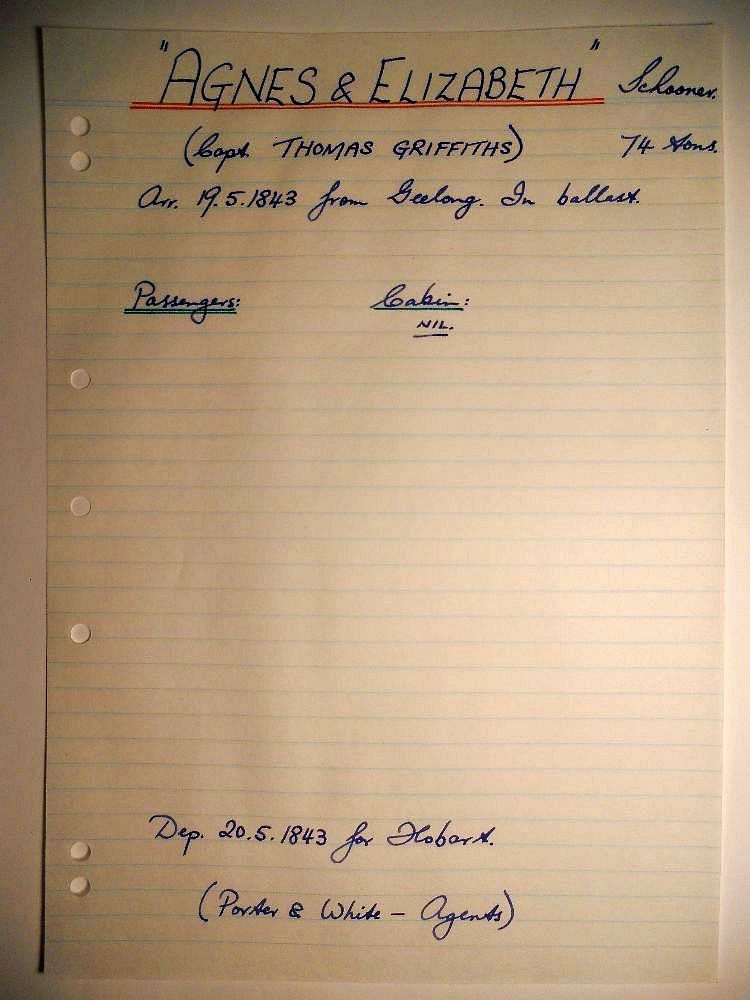 "AGNES & ELIZABETH" Schooner.
(Capt. THOMAS GRIFFITHS) 74 tons.
Arr. 19.5.1843 from Geelong. In ballast.
Passengers: Cabin:
NIL.
Dep. 20.5.1843 for Hobart.
(Porter & White - Agents)